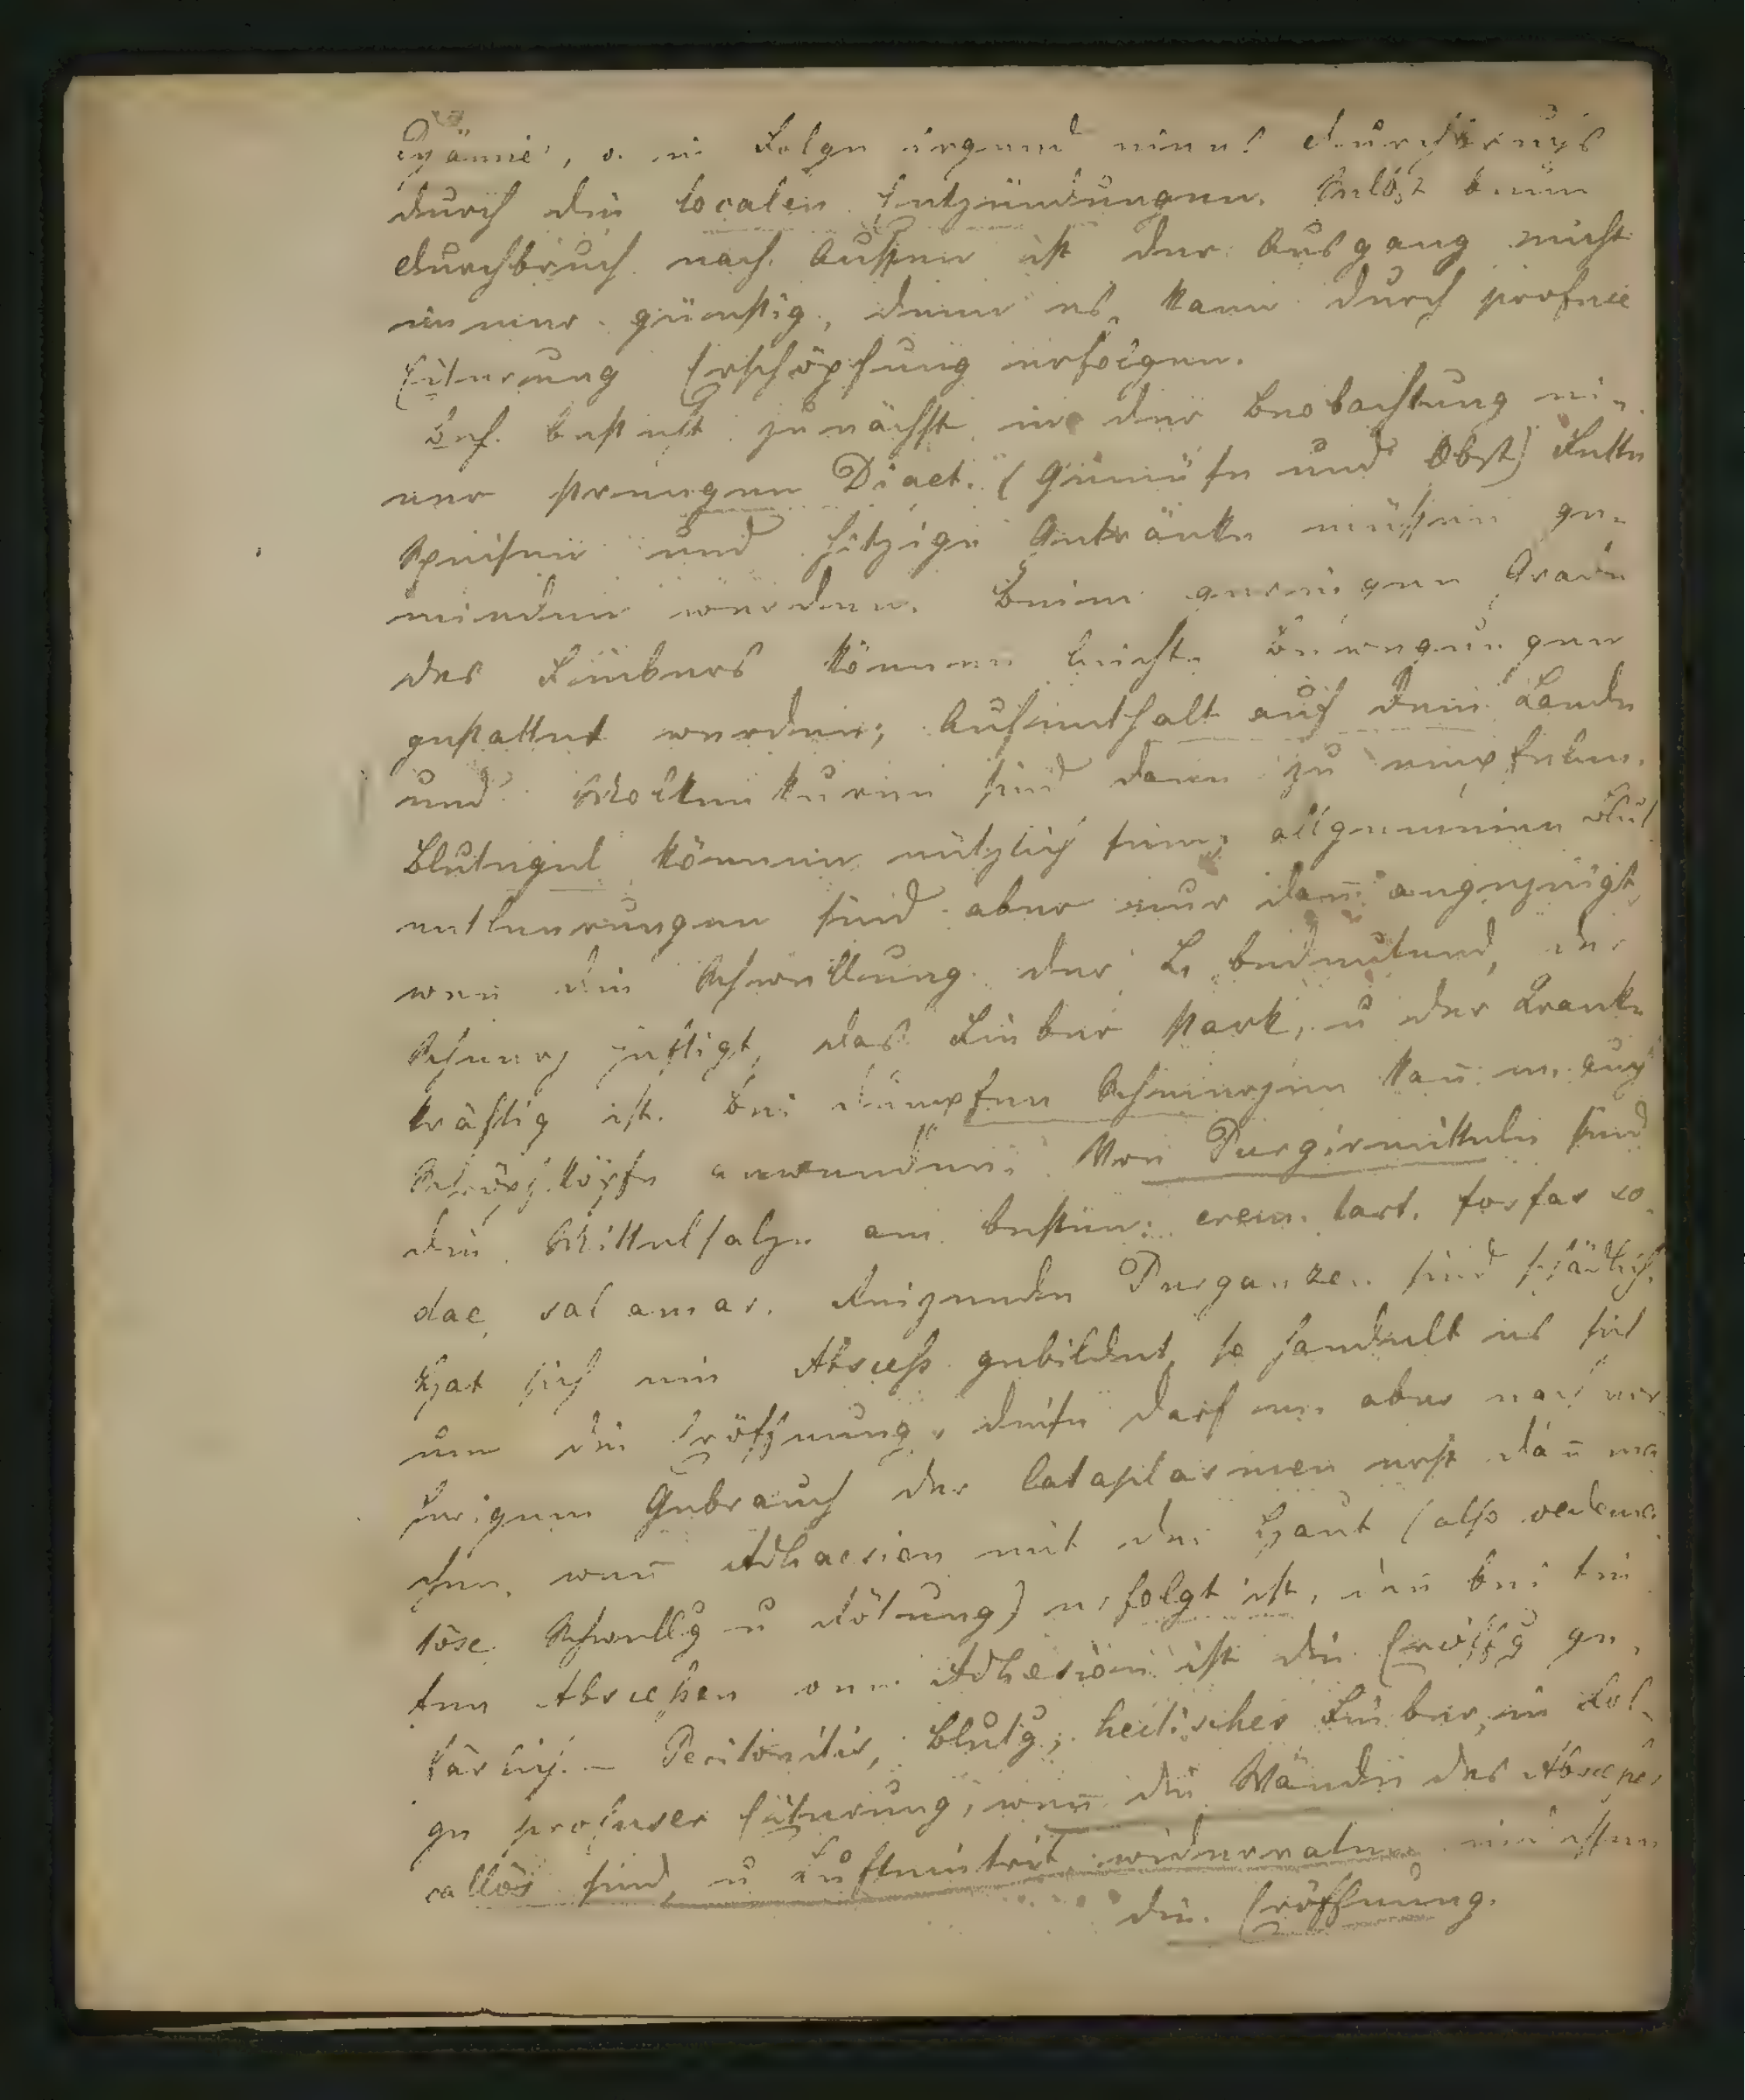 Pyämie, o. in Folge irgend eines Durchbruchs
durch die localen Entzündungen. Selbst beim
Durchbruch nach Außen ist der Ausgang nicht
immer günstig, denn es kann durch profuse
Eiterung Erschöpfung erfolgen.
Beh. besteht zunächst in der Beobachtung ei-
ner strengen Diaet. (Gemüse und Obst) Fette
Speisen und hitzige Getränke müssen ge-
mieden werden. Beim geringen Grade
des Fiebers können leichte Bewegungen
gestattet werden; Aufenthalt auf dem Lande
und Molkenkuren sind dann zu empfehlen.
Blutegel können nützlich sein; allgemeine Blut
entleerungen sind aber nur dañ angezeigt,
wenn die Schwellung der L. bedeutend, der
Schmerz heftigt, das Fieber stark, u der Kranke
kräftig ist. Bei dumpfen Schmerzen kañ m. auch
Schröpfköpfe anwenden. Von Purgirmitteln sind
die Mittelsalze am besten: crem. tart. fosfas so-
dae, sal amar. Reizende Purganzen sind schädlich.
Hat sich ein Abscess gebildet, so handelt es sich
um die Eröffnung, diese darf m. aber nach vor-
herigem Gebrauch der Cataplasmen erst dañ ma
chen, weñ Adhaesion mit der Haut (also oedema-
töse Schwellg u Rötung) erfolgt ist, deñ bei tie
fen Abscessen ohne Adhesion ist die Eröffg ge-
färlich. – Peritonitis, Blutg, hectisches Fieber, in Fol-
ge profuser Eiterung, weñ die Wände des Abscesses
callös sind, u Lufteintrit widerraten
die Eröffnung.